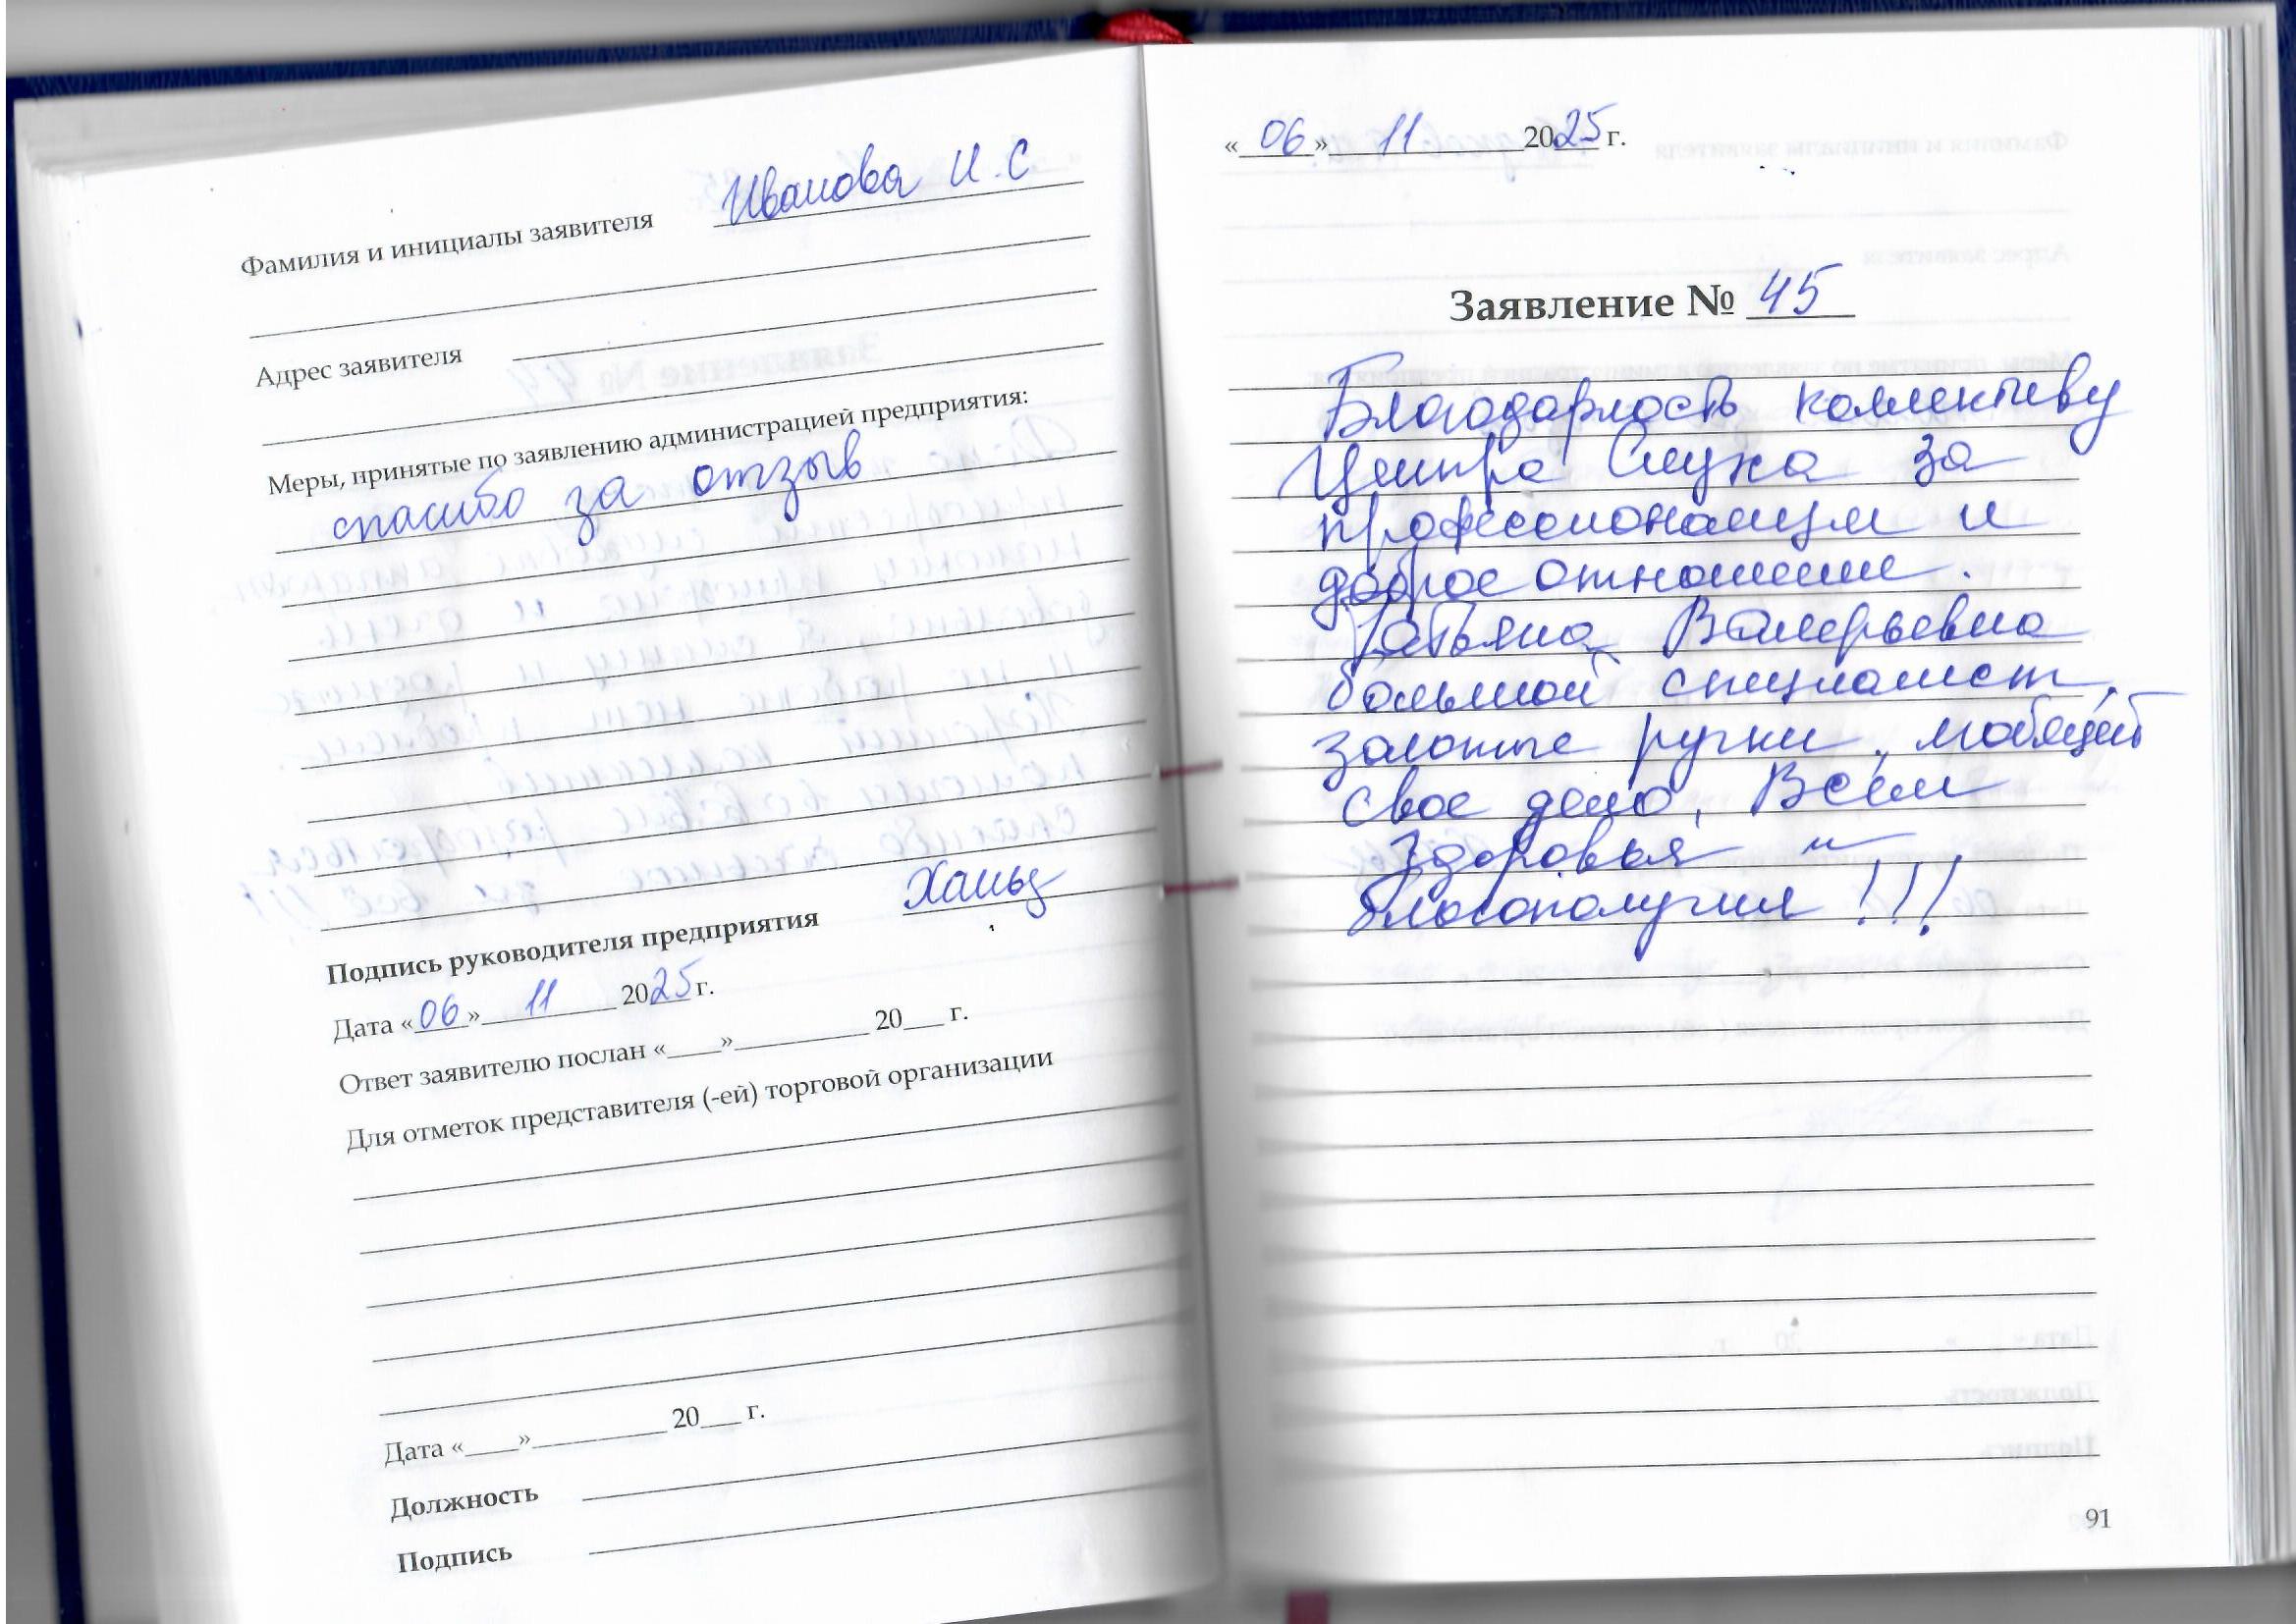 Фамилия и инициалы заявителя Иванова И.С
Адрес заявителя
Меры, принятые по заявлению администрацией предприятия:
спасибо за отзыв
Подпись руководителя предприятия
Дата «06» 11 2025 г.
Ответ заявителю послан «____»__________ 20___ г.
Для отметок представителя (-ей) торговой организации
Дата «____»__________ 20___ г.
Должность
Подпись
«06» 11 2025 г.
Заявление № 45
Благодарность коллективу
Центра Слуха за
профессионализм и
доброе отношение.
Татьяна Валерьевна
большой специалист,
золотые ручки, любящей
свое дело. Всем
здоровья и
благополучия!!!
91